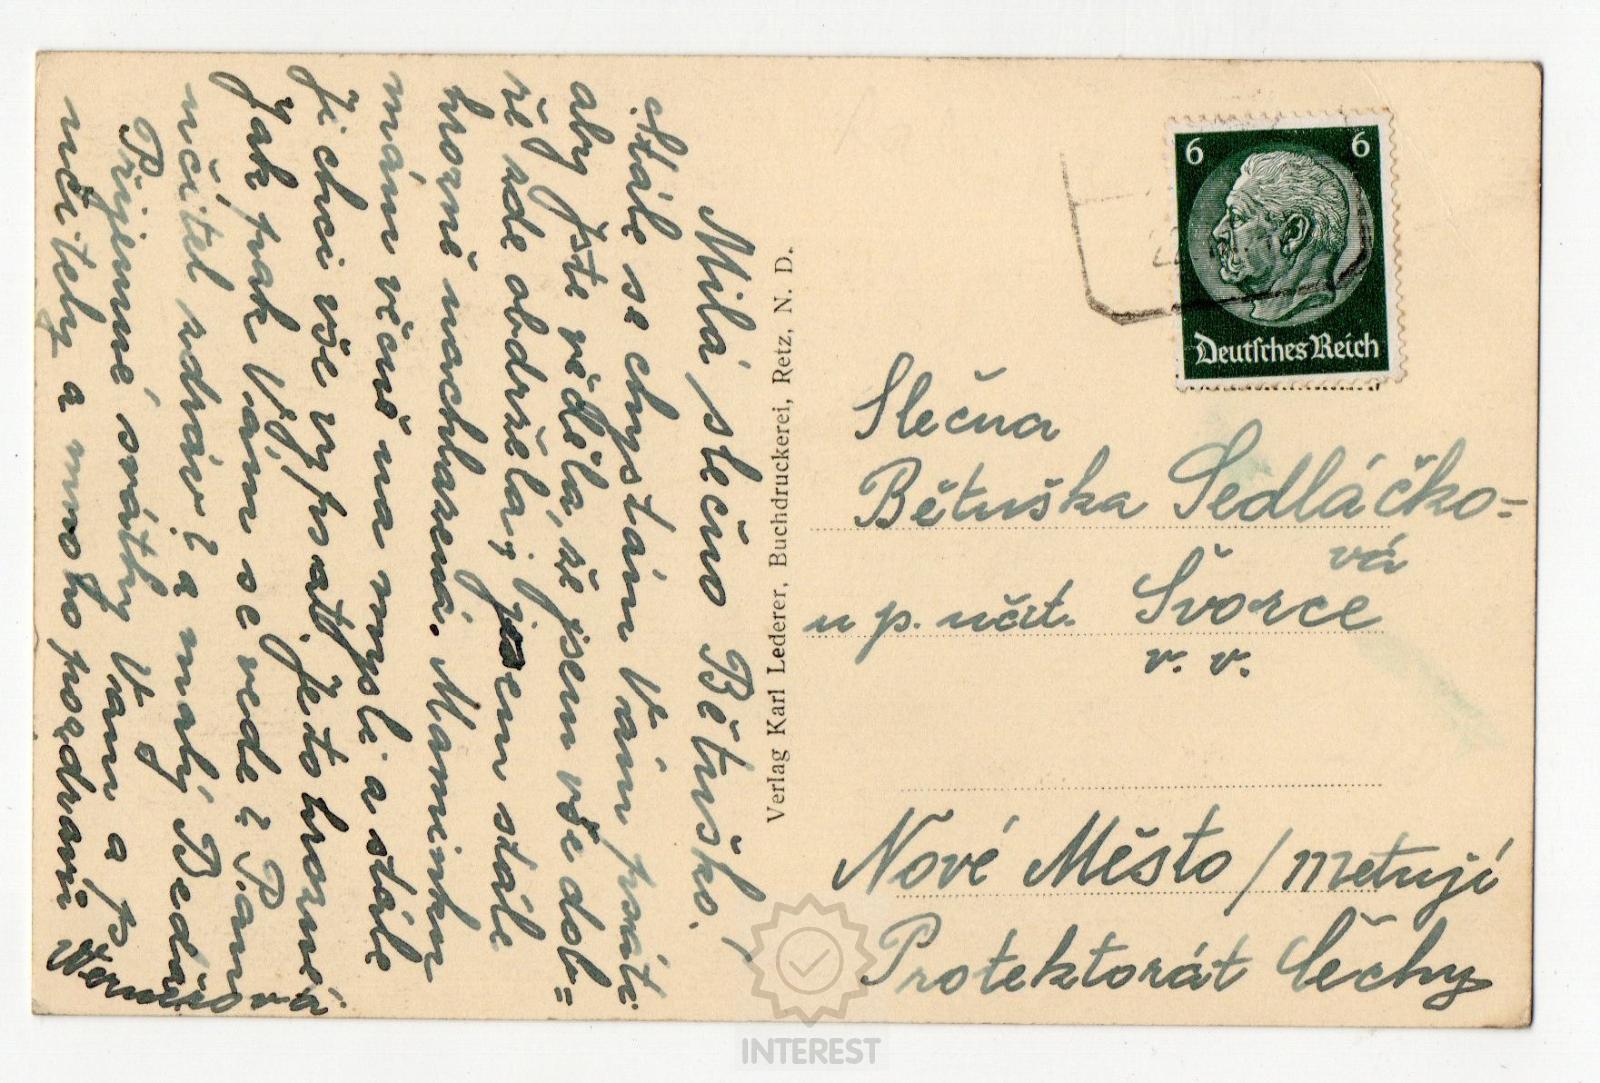 Milá slečno Bětuško!
Stále se chystám Vám psáti
aby jste věděla, že jsem vše dob=
ře zde obdržela; jsem stále
hrozně nachlazená. Maminku
mám věčně na mysli a stále
Ji chci vše vypsat, je to hrozné
Jak pak Vám se vede? Pan
učitel zdráv? a malý Beďa
Příjemné svátky Vám a p
učitely a mnoho pozdravů
Wernerová
Verlag Karl Lederer, Buchdruckerei, Retz, N. D.
6 6
Deutsches Reich
Slečna
Bětuška Sedláčko=
vá
u p. učit. Švorce
v. v.
Nové Město / Metují
Protektorát Čechy
INTEREST